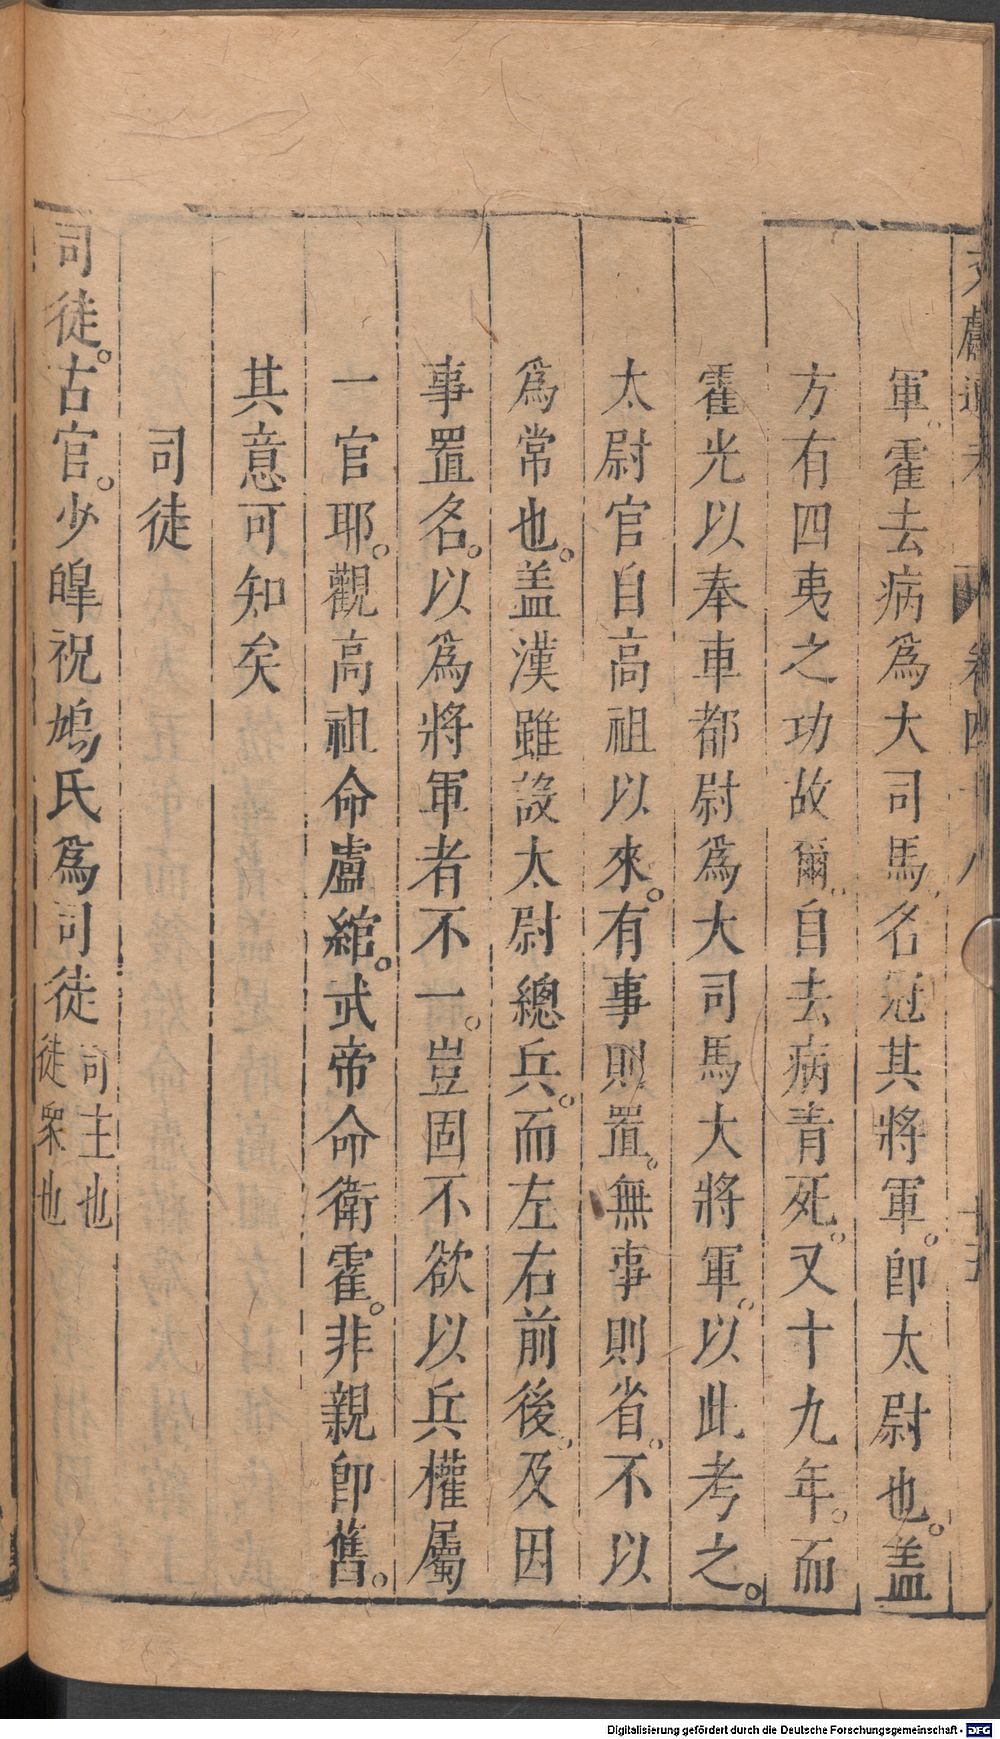 文獻通考 卷四十八 十五
軍霍去病爲大司馬名冠其將軍。卽太尉也。盖
方有四夷之功故爾自去病青死。又十九年。而
霍光以奉車都尉爲大司馬大將軍。以此考之。
太尉官自高祖以來。有事則置。無事則省。不以
爲常也。盖漢雖設太尉總兵。而左右前後。及因
事置名。以爲將軍者不一。豈固不欲以兵權屬
一官耶。觀高祖命盧綰。武帝命衛霍。非親卽舊。
其意可知矣
司徒
司徒。古官。少皥祝鳩氏爲司徒 司主也
徒衆也
Digitalisierung gefördert durch die Deutsche Forschungsgemeinschaft - DFG